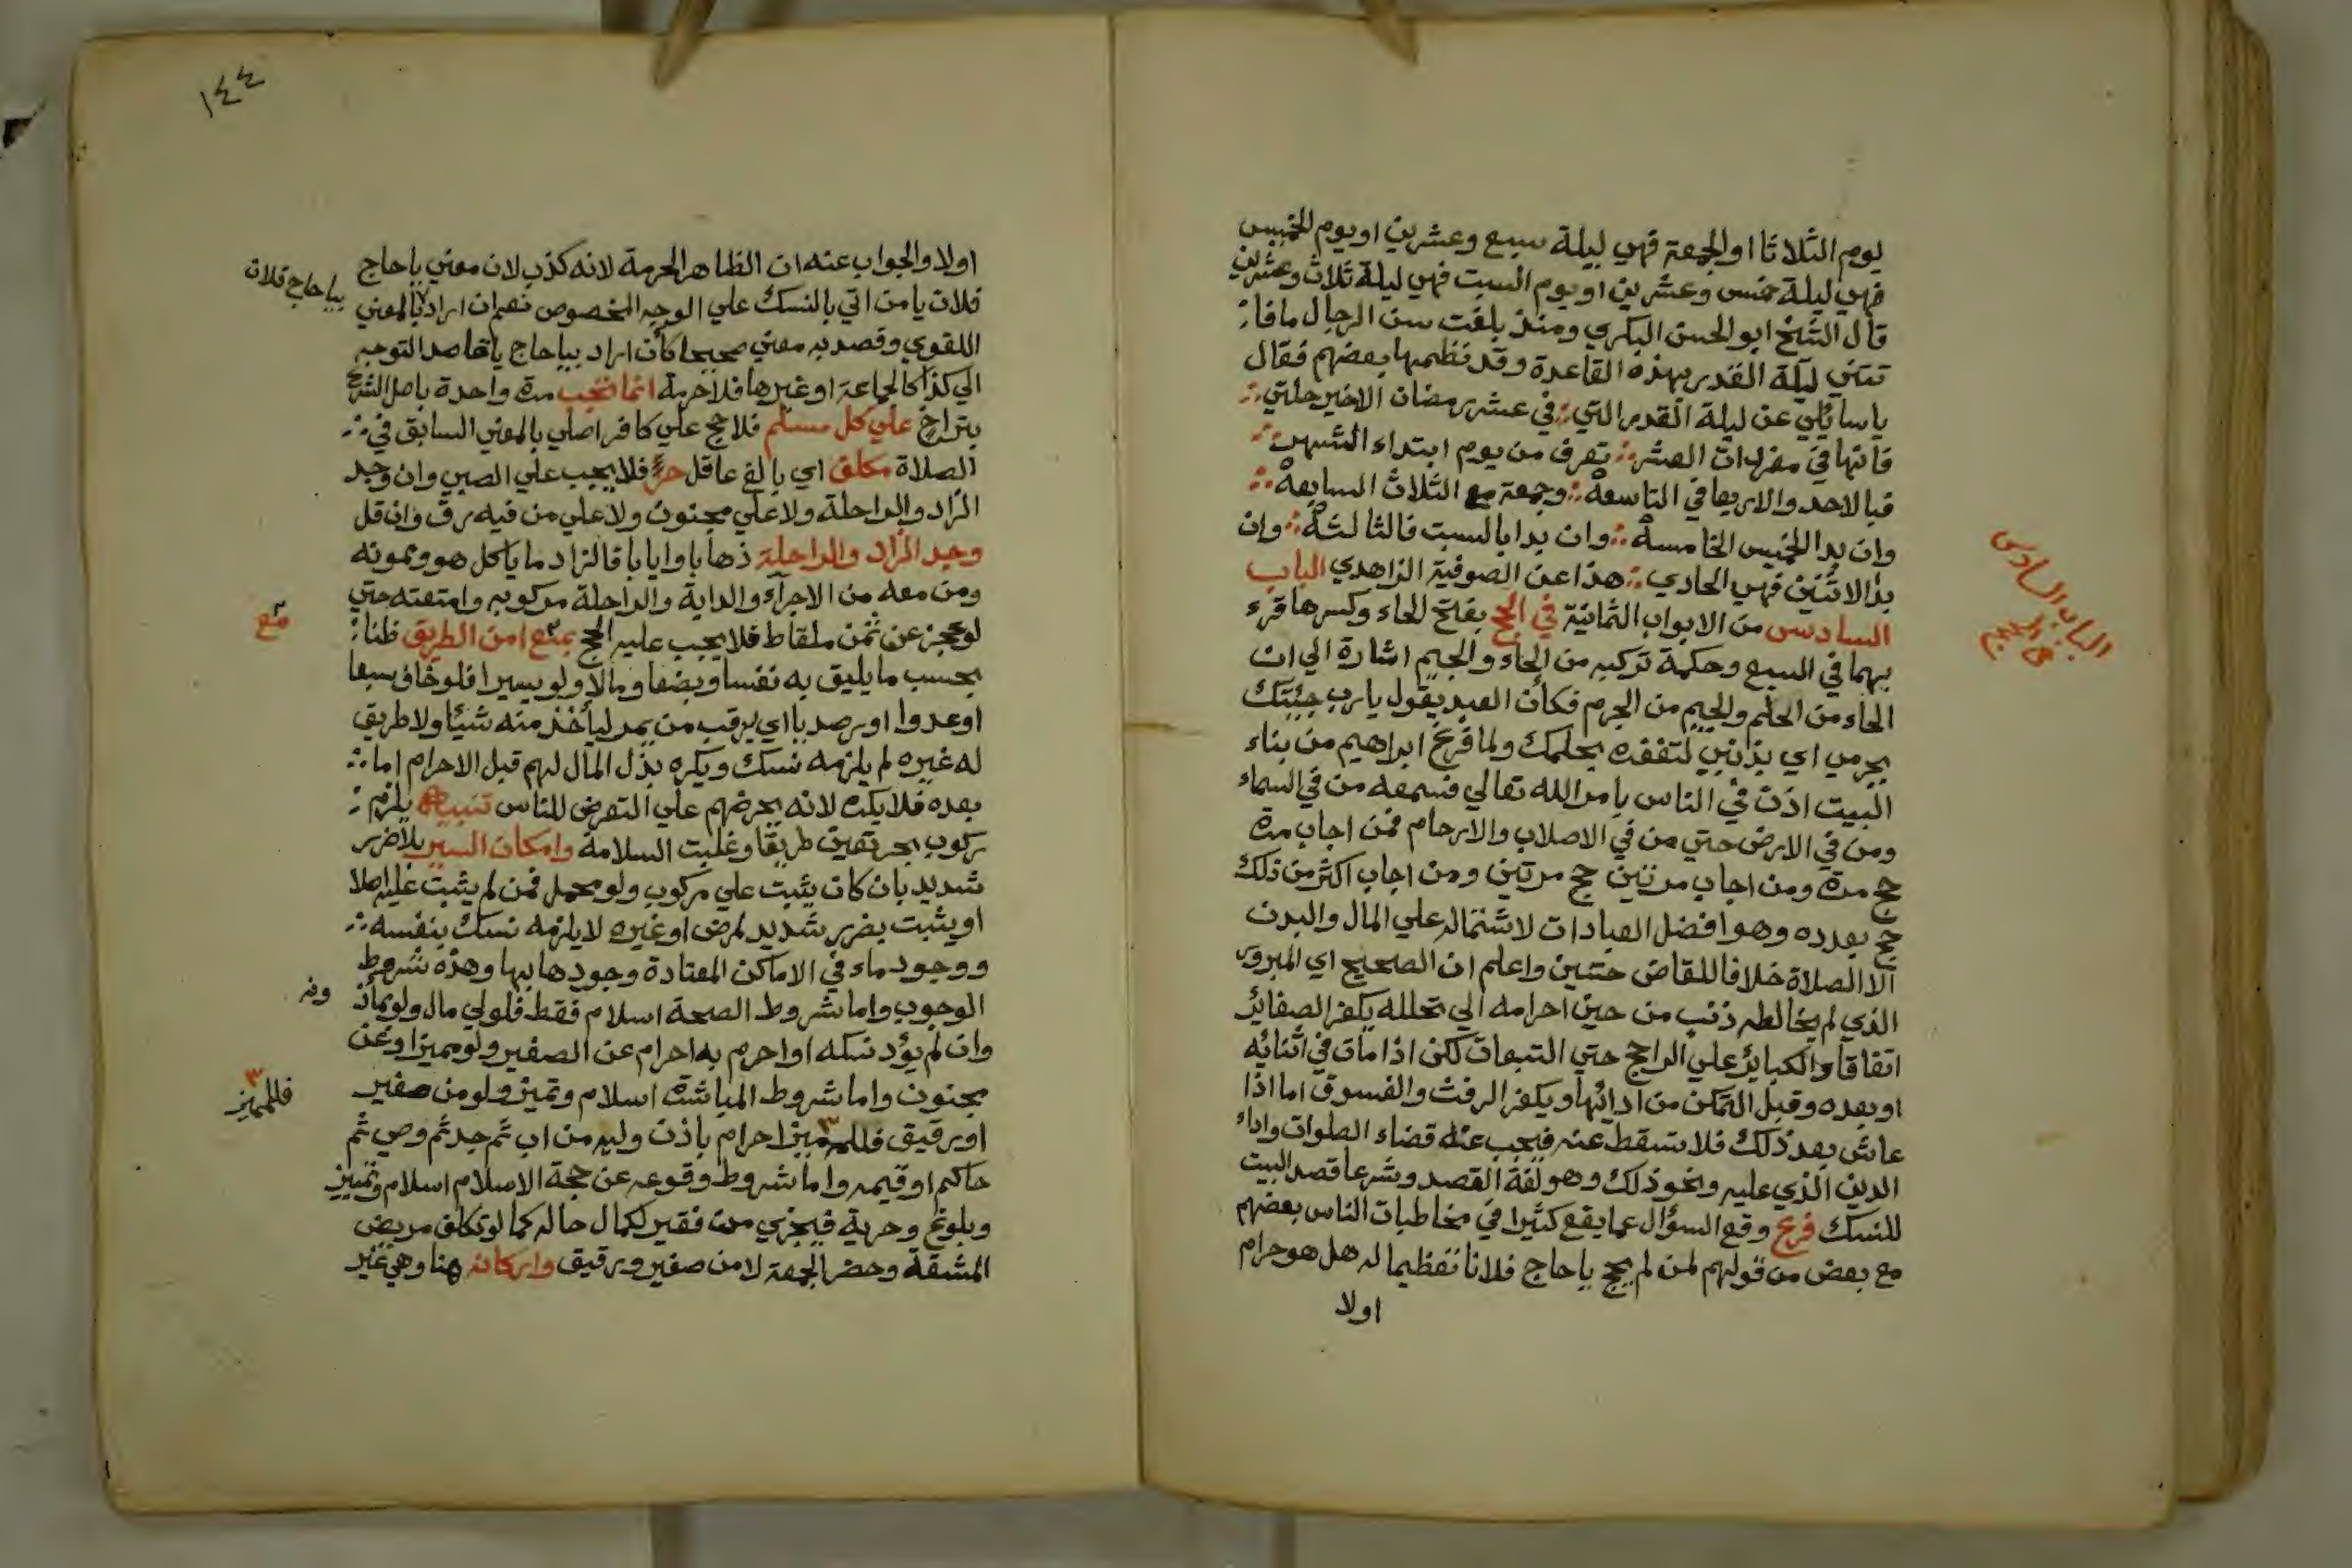 يوم الثلاثا او الجمعة فهي ليلة سبع وعشرين او يوم الخميس
فهي ليلة خمس وعشرين او يوم السبت فهي ليلة ثلاث وعشرين
قال الشيخ ابو الحسن البكري ومنذ بلغت سن الرجال ما فا
تتني ليلة القدر بهذه القاعدة وقد نظمها بعضهم فقال
يا سائلي عن ليلة القدر التي في عشر رمضان الاخير حلتي
فانها في مفردات العشر تعرف من يوم ابتداء الشهر
فبالاحد والاربعا في التاسعة وجمعة مع الثلاث السابعة
وان بدا الخميس الخامسة وان بدا بالسبت فالثالثة وان
بدا الاثنين فهي الحادي هذا عن الصوفية الزاهدي الباب
السادس من الابواب الثمانية في الحج بفتح الحاء وكسرها قرء
بهما في السبع وحكمة تركيبه من الحاء والجيم اشارة الي ان
الحاء من الحلم والجيم من الجرم فكأن العبد يقول يارب جئتك
بجرمي اي بذنبي لتغفره بحلمك ولما فرغ ابراهيم من بناء
البيت اذن في الناس بامر الله تعالي فسمعه من في السماء
ومن في الارض حتي من في الاصلاب والارحام فمن اجاب مرة
حج مرة ومن اجاب مرتين حج مرتين ومن اجاب اكثر من ذلك
حج بعدده وهو افضل العبادات لاشتماله علي المال والبدن
الا الصلاة خلافا للقاضي حسين واعلم ان الصحيح اي المبرور
الذي لم يخالطه ذنب من حين احرامه الي تحلله يكفر الصغائر
اتفاقا والكبائر علي الراجح حتي التبعات لكن اذا مات في اثنائه
او بعده وقبل التمكن من ادائها ويكفر الرفث والفسوق اما اذا
عاش بعد ذلك فلا تسقط عنه فيجب عنه قضاء الصلوات واداء
الدين الذي عليه ونحو ذلك وهو لغة القصد وشرعا قصد البيت
للنسك فرع وقع السؤال عما يقع كثيرا في مخاطبات الناس بعضهم
مع بعض من قولهم لمن لم يحج يا حاج فلانا تعظيما له هل هو حرام
اولا
الباب السادس
في الحج
١٤٤
اولا والجواب عنه ان الظاهر الحرمة لانه كذب لان معني يا حاج
فلان يا من اتي بالنسك علي الوجه المخصوص نعم ان اراد بالمعني
بيا حاج فلان
اللغوي وقصد به معني صحيحا كأن اراد بيا حاج يا قاصد التوجه
الي كذا كالجماعة او غيرها فلا حرمة انما تجب مرة واحدة باصل الشرع
بتراخ علي كل مسلم فلا حج علي كافر اصلي بالمعني السابق في
الصلاة مكلف اي بالغ عاقل حر فلا يجب علي الصبي وان وجد
الزاد والراحلة ولا علي مجنون ولا علي من فيه رق وان قل
وجد الزاد والراحلة ذهابا وايابا فالزاد ما ياكل هو وممونه
ومن معه من الاجرآء والداية والراحلة مركوبه وامتعته حتي
لو عجز عن ثمن ملقاط فلا يجب عليه الحج بمع امن الطريق ظنا
مع
بحسب ما يليق به نفسا وبضعا ومالا ولو يسيرا فلو خاف سبعا
او عدوا او رصديا اي يرقب من يمر ليأخذ منه شيئا ولا طريق
له غيره لم يلزمه نسك ويكره بذل المال لهم قبل الاحرام اما
بعده فلا يكره لانه يحرضهم علي التعرض للناس تنبيه يلزم
ركوب بحر تعين طريقا وغلبت السلامة وامكان السير بلا ضرر
شديد بان كان يثبت علي مركوب ولو محمل فمن لم يثبت عليه اصلا
او يثبت بضرر شديد لمرض او غيره لا يلزمه نسك بنفسه
ووجود ماء في الاماكن المعتادة وجودها بها وهذه شروط
الوجوب واما شروط الصحة اسلام فقط فلولي مال ولو بمأذ
ونه
وان لم يؤد نسكه او احرم به احرام عن الصغير ولو مميزا وعن
مجنون واما شروط المباشرة اسلام وتميز ولو من صغير
او رقيق فللمميز احرام باذن وليه من اب ثم جد ثم وصي ثم
فللمميز
حاكم او قيمه واما شروط وقوعه عن حجة الاسلام اسلام وتمييز
وبلوغ وحرية فيجزي من فقير لكمال حاله كما لو تكلف مريض
المشقة وحضر الجمعة لا من صغير ورقيق واركانه هنا وهي غير